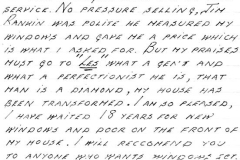 SERVICE. NO PRESSURE SELLING, JIM
RANKIN WAS POLITE HE MEASURED MY
WINDOWS AND GAVE ME A PRICE WHICH
IS WHAT I ASKED FOR. BUT MY PRAISES
MUST GO TO "LES" WHAT A GENT AND
WHAT A PERFECTIONIST HE IS, THAT
MAN IS A DIAMOND, MY HOUSE HAS
BEEN TRANSFORMED. I AM SO PLEASED,
I HAVE WAITED 18 YEARS FOR NEW
WINDOWS AND DOOR ON THE FRONT OF
MY HOUSE. I WILL RECOMEND YOU
TO ANYONE WHO WANTS WINDOWS ETC.